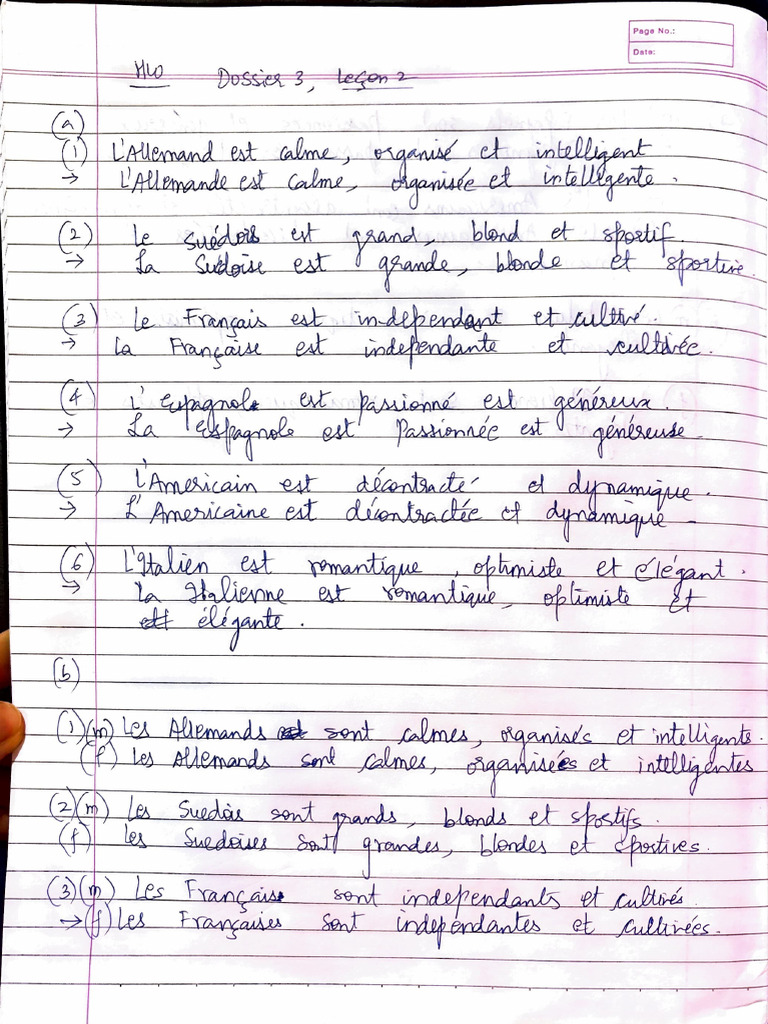 Page No.:
Date:
HW Dossier 3, Leçon 2
(a)
(1) L'Allemand est calme, organisé et intelligent
→ L'Allemande est calme, organisée et intelligente.
(2) Le suédois est grand, blond et sportif.
→ La Sudoise est grande, blonde et sportive.
(3) Le Français est independant et cultivé.
→ La Française est independante et cultivée.
(4) L'espagnol est passionné est généreux.
→ La Espagnole est passionnée est généreuse
(5) L'Americain est décontracté et dynamique.
→ L'Americaine est décontractée et dynamique
(6) L'Italien est romantique, optimiste et élégant.
→ La Italienne est romantique, optimiste et
élégante.
(b)
(1)(m) Les Allemands sont calmes, organisés et intelligents.
(f) Les Allemands sont calmes, organisées et intelligentes
(2)(m) Les Suedois sont grands, blonds et sportifs.
(f) Les Suedoises sont grandes, blondes et sportives.
(3)(m) Les Français sont independants et cultivés.
→(f) Les Françaises sont independantes et cultivées.